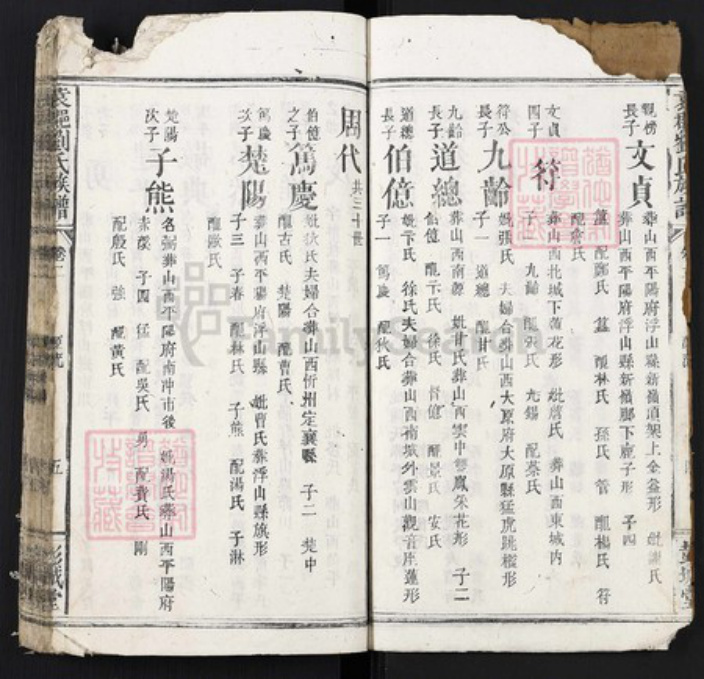 觀榜
長子
文貞
葬山西平陽府浮山縣新嶺頂架上金盆形 妣謝氏
葬山西平陽府浮山縣新嶺鄉下鹿子形 子四
配鄭氏 配林氏 孫氏 管 配楊氏 符
配俞氏
文貞
四子
符
葬山西北城下蓮花形 妣唐氏 葬山西東城內
子二 九齡 配張氏 九錫 配蔡氏
符公
長子
九齡
妣張氏 夫婦合葬山西大原府大原縣猛虎跳檻形
子一 道總 配甘氏
九齡
長子
道總
葬山西南 妣甘氏葬山西雲中雙鳳朱花形 子二
伯億 配卞氏 徐氏 督億 配景氏 安氏
道總
長子
伯億
妣卞氏 徐氏夫婦合葬山西南城外雲山觀音座蓮形
子一 篤慶 配狄氏
周代
共三十世
伯億
之子
篤慶
妣狄氏夫婦合葬山西忻州定襄縣 子二 楚中
配古氏 楚陽 配曹氏
篤慶
次子
楚陽
葬山西平陽府浮山縣 妣曹氏葬浮山縣旗形
子三 子春 配林氏 子熊 配湯氏 子淋
配歐氏
楚陽
次子
子熊
名弼葬山西平陽府南冲市後 妣湯氏葬山西平陽府
子四 猛 配吳氏 勇 配費氏 剛
配殷氏 強 配黃氏
劉氏族譜
卷一
五
彭城堂